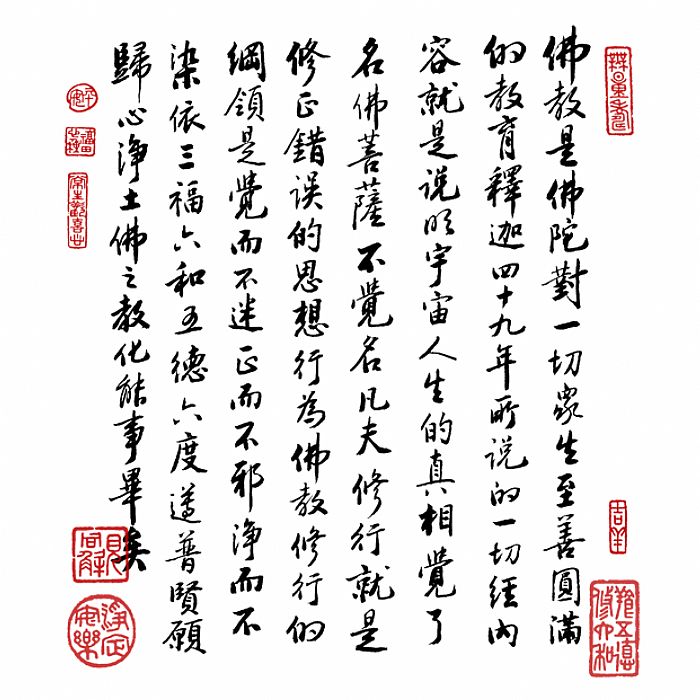 佛教是佛陀對一切眾生至善圓滿
的教育釋迦四十九年所說的一切經內
容就是說明宇宙人生的真相覺了
名佛菩薩不覺名凡夫修行就是
修正錯誤的思想行為佛教修行的
綱領是覺而不迷正而不邪淨而不
染依三福六和五德六度遵普賢願
歸心淨土佛之教化能事畢矣
吉羊